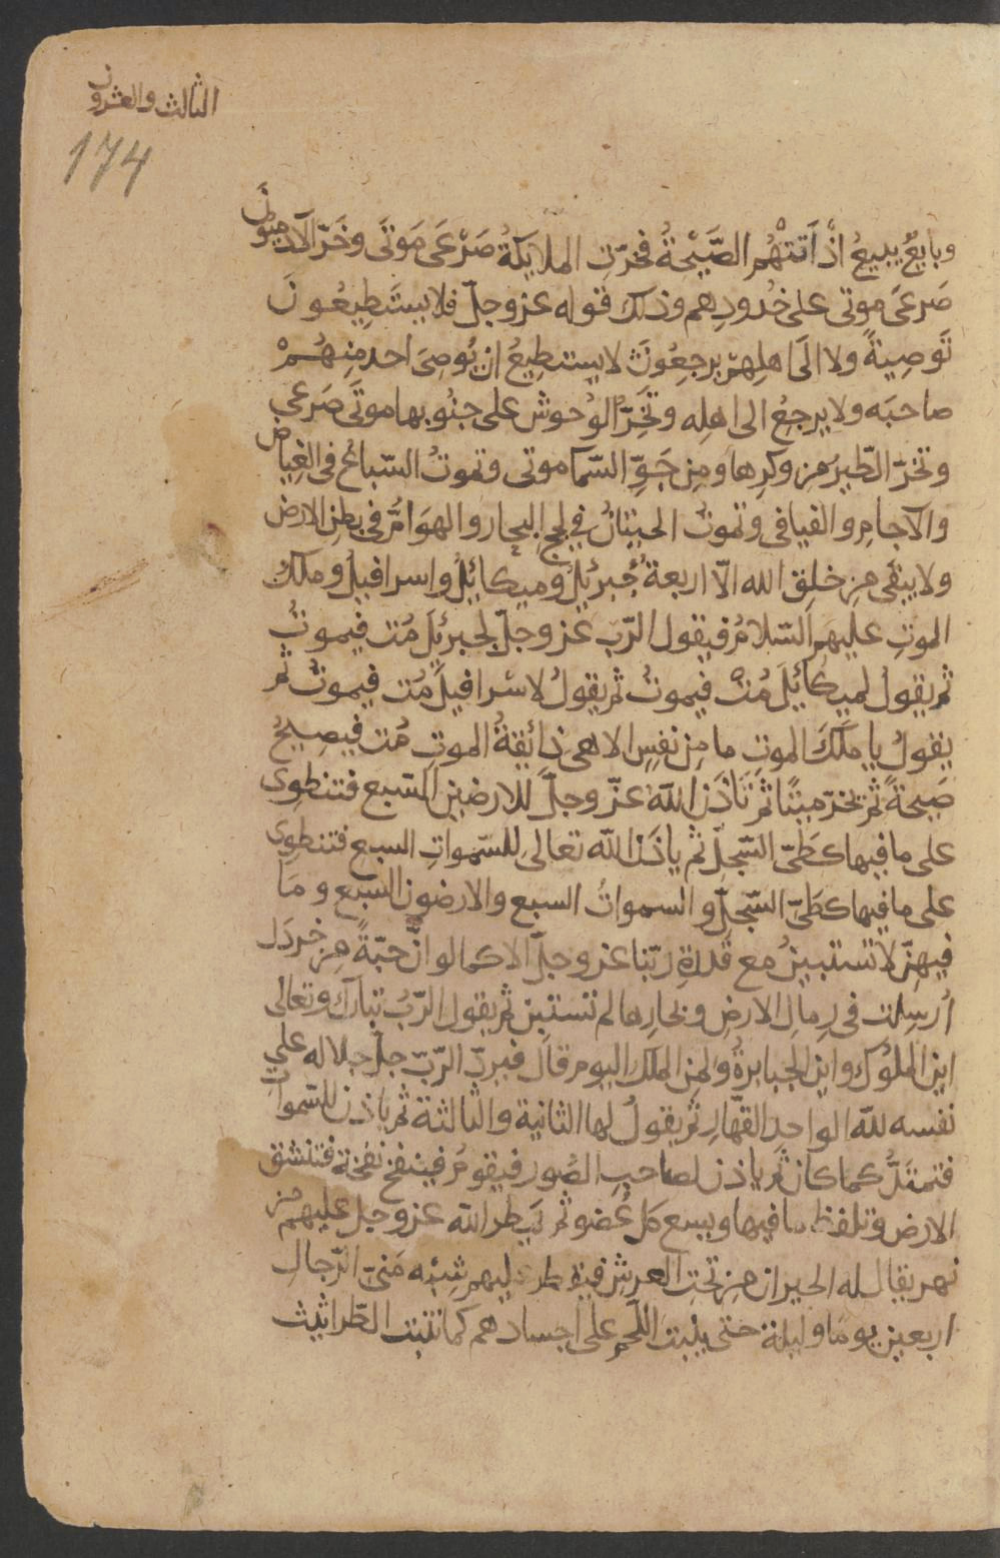 الثالث والعشرون
174
وبايعٌ يبيعُ اذْ اَتتْهُم الصَّيْحةُ فخرّتِ الملايكةُ صَرْعَى مَوتَى وخَرّ الآدميّونَ
صَرعَى موتى على خُدُودِهم وذلك قوله عز وجلّ فلا يستَطِيعُونَ
تَوصِيةً ولا الَى اهلِهم يرجِعُونَ لا يستطِيعُ ان يُوصِىَ احد مِنهُمْ
صاحبَه ولا يرجعُ الى اهلِه وتَخِرُّ الوُحوش على جنُوبها موتَى صَرعى
وتخرّ الطّيرُ مِن وكرِها ومِن جَوِّ السّما موتى وتموتُ السّباعُ فى الغِياض
والآجامِ والفيافى وتموتُ الحيتانُ فى لججِ البحار والهوَامُّ فى بطنِ الارض
ولا يبقَى مِن خلقِ الله الّا اربعةٌ جُبرئيلُ وميكائيلُ واسرافيلُ وملكُ
الموتِ عليهم السّلامُ فيقول الرّبّ عز وجلّ لجبرئيلَ مُت فيموتُ
ثم يقولُ لميكائيلَ مُتْ فيموتُ ثم يقولُ لاسْرافيلَ مُت فيموتُ ثم
يقولُ يا ملَكَ الموتِ ما مِن نفسٍ الا هى ذائقةُ الموتِ مُت فيصِيحُ
صَيحةً ثم يخرّ ميتًا ثم يَاْذَن اللهُ عزّ وجلّ للارضين السّبع فتنطوى
على ما فيها كطَىّ السّجلّ ثم ياذَنُ اللّه تعالى للسّمواتِ السبع فتنطوى
على ما فيها كطَىّ السّجلّ والسمواتُ السبع والارضون السّبع ومَا
فيهنّ لا تستبينُ مع قدرةِ ربّنا عز وجلّ الا كما لو انّ حبّةً مِن خردَل
اُرسِلت فى رِمالِ الارضِ وبحارِها لم تستبن ثم يقول الرّبُ تبارك وتعالى
اين الملوُك واين الجبابرةُ ولمن الملك اليوم قال فيردّ الرّبّ جلّ جلاله على
نفسه للّه الواحدِ القهّارِ ثم يقولُ لها الثانية والثالثة ثم ياذن للسّموات
فتمتدُّ كما كان ثم ياذن لصاحبِ الصُور فيقومُ فينفخ نفخة فتنشق
الارض وتلفظ ما فيها ويسع كل عُضو ثم يَمطر اللّه عز وجل عليهم من
نهر يقال له الحيوان مِن تحتِ العرشِ عليهم شِبْه مَنىّ الرّجالِ
اربعين يومًا وليلة حتى ينبت اللّحم على اجسادهم كما تنبت الطّراثيث